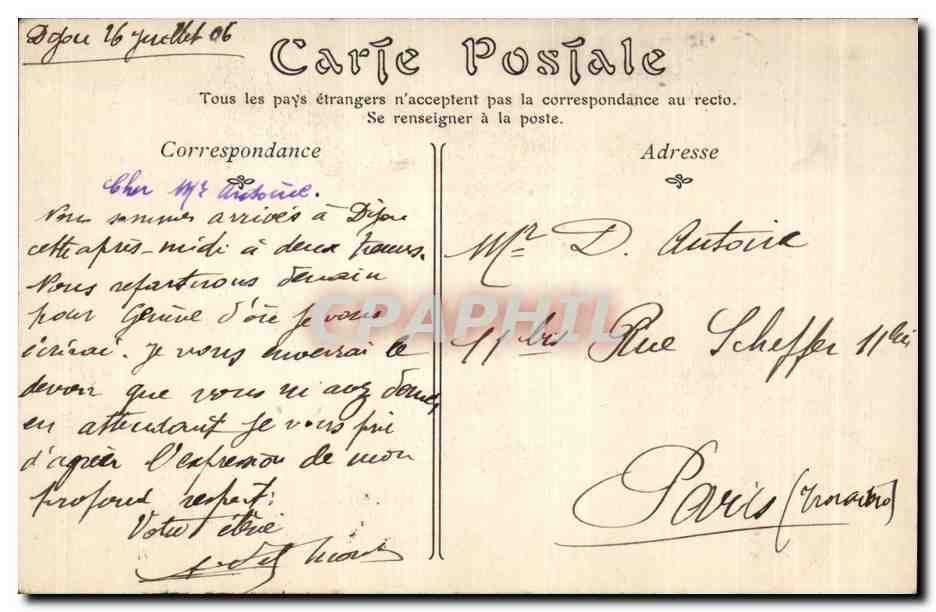 Dijon 26 juillet 06
Carte Postale
Tous les pays étrangers n'acceptent pas la correspondance au recto.
Se renseigner à la poste.
Correspondance
Cher Mr Antoine.
Nous sommes arrivés à Dijon
cette après-midi à deux heures.
Nous repartirons demain
pour Genève d'où je vous
écrirai. Je vous enverrai le
devoir que vous m'avez donné,
en attendant je vous prie
d'agréer l'expression de mon
profond respect:
Votre élève
Adresse
Mr D. Antoine
11 bis Rue Scheffer 11 bis
Paris (Trocadéro)
CPAPHIL